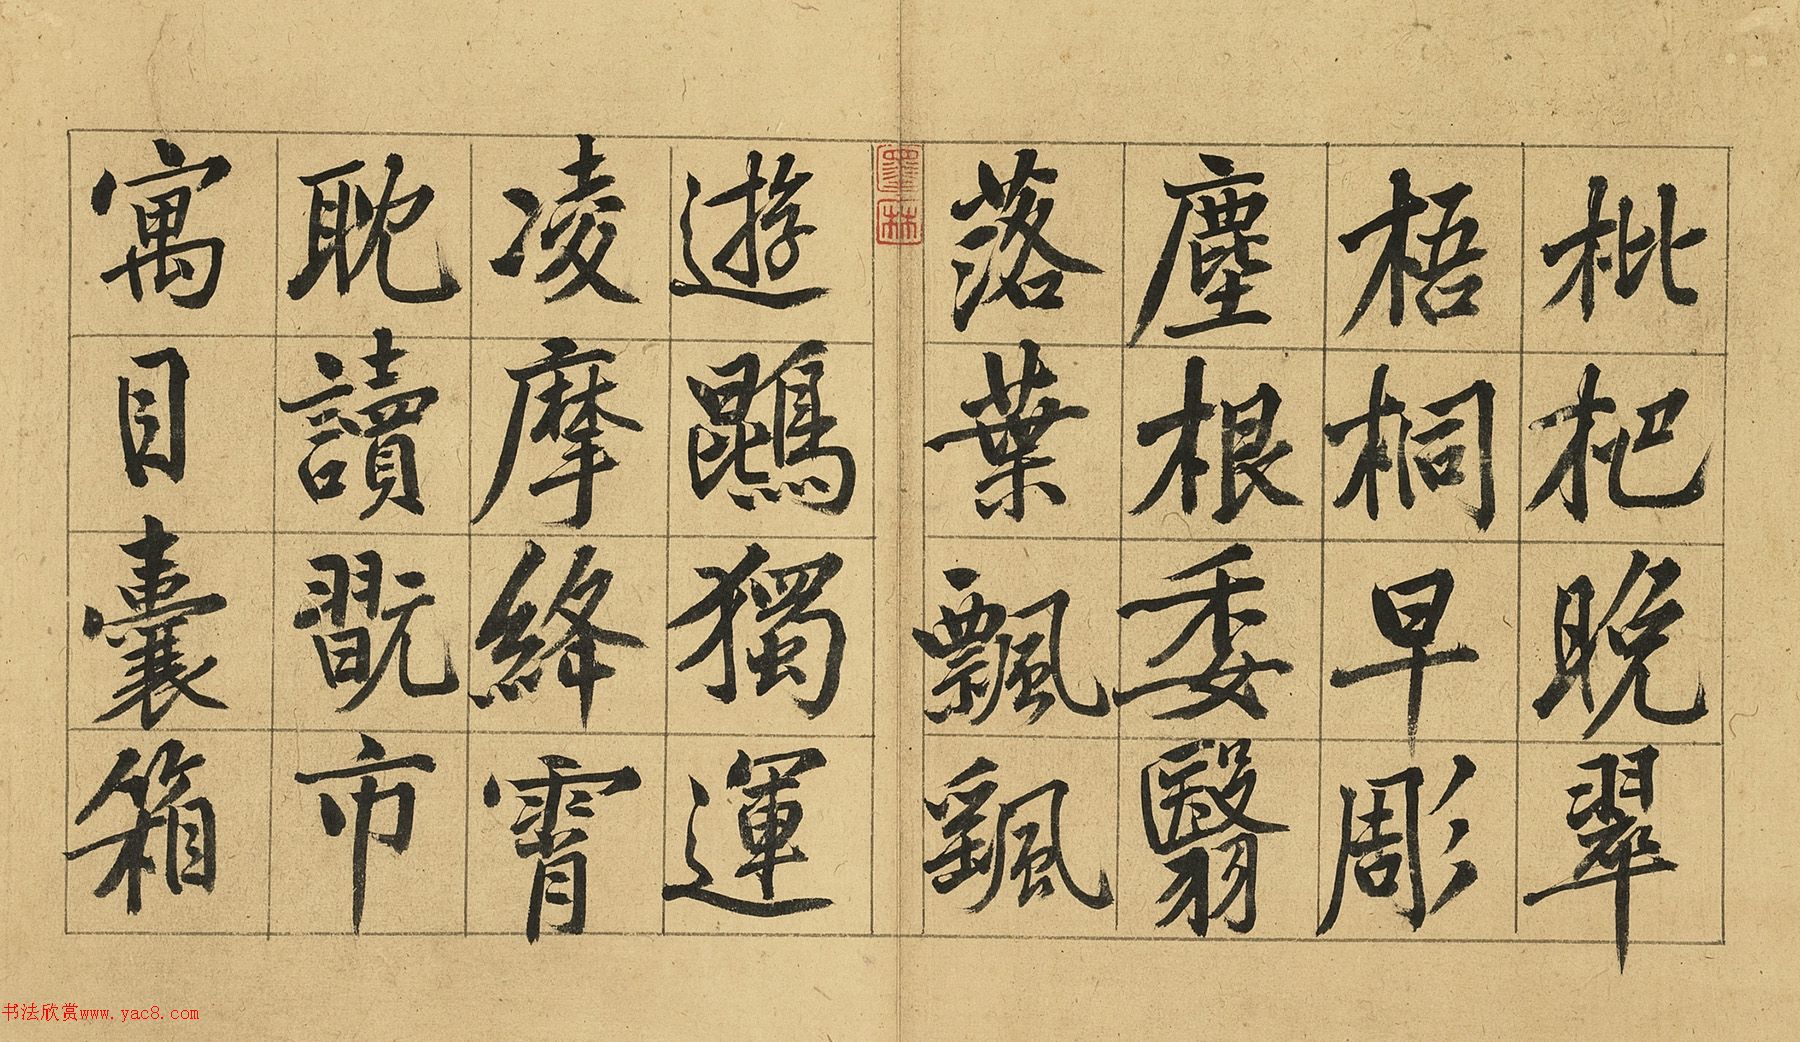 枇杷晚翠
梧桐早彫
塵根委翳
落葉飄颻
墨林
遊鵾獨運
凌摩絳霄
耽讀翫市
寓目囊箱
书法欣赏www.yac8.com